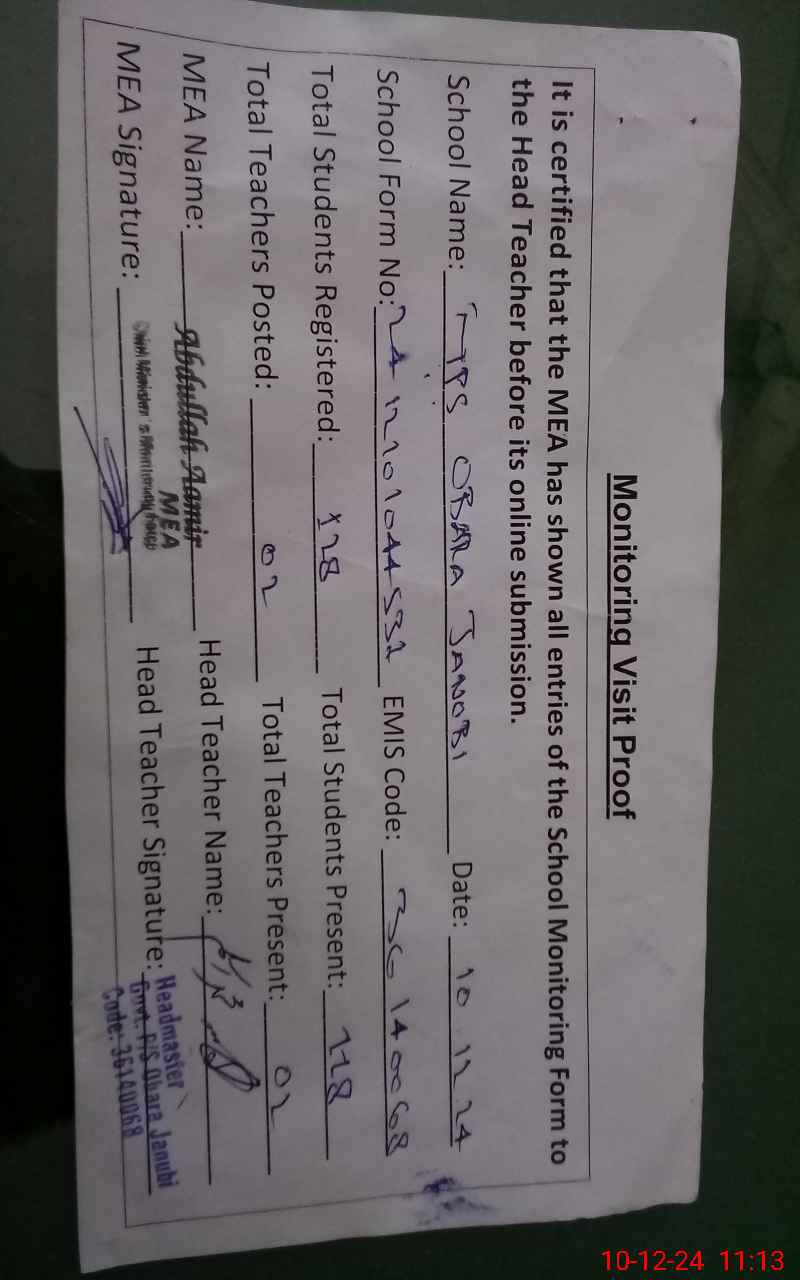 Monitoring Visit Proof
It is certified that the MEA has shown all entries of the School Monitoring Form to
the Head Teacher before its online submission.
School Name: GPS OBARA JANOBI Date: 10.12.24
School Form No: 2412101044532 EMIS Code: 36140068
Total Students Registered: 128 Total Students Present: 118
Total Teachers Posted: 02 Total Teachers Present: 02
MEA Name: Abdullah Aamir Head Teacher Name:
MEA
MEA Signature: Chief Minister's Monitoring Force Head Teacher Signature:
Headmaster
Govt. P/S Obara Janubi
Code: 36140068
10-12-24 11:13